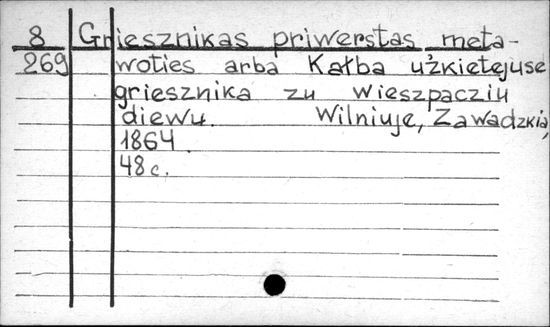 8 Griesznikas priwerstas meta-
269 woties arba Kałba użkietejuse
griesznika zu Wieszpacziu
diewu. Wilniuje, Zawadzkia,
1864.
48 c.